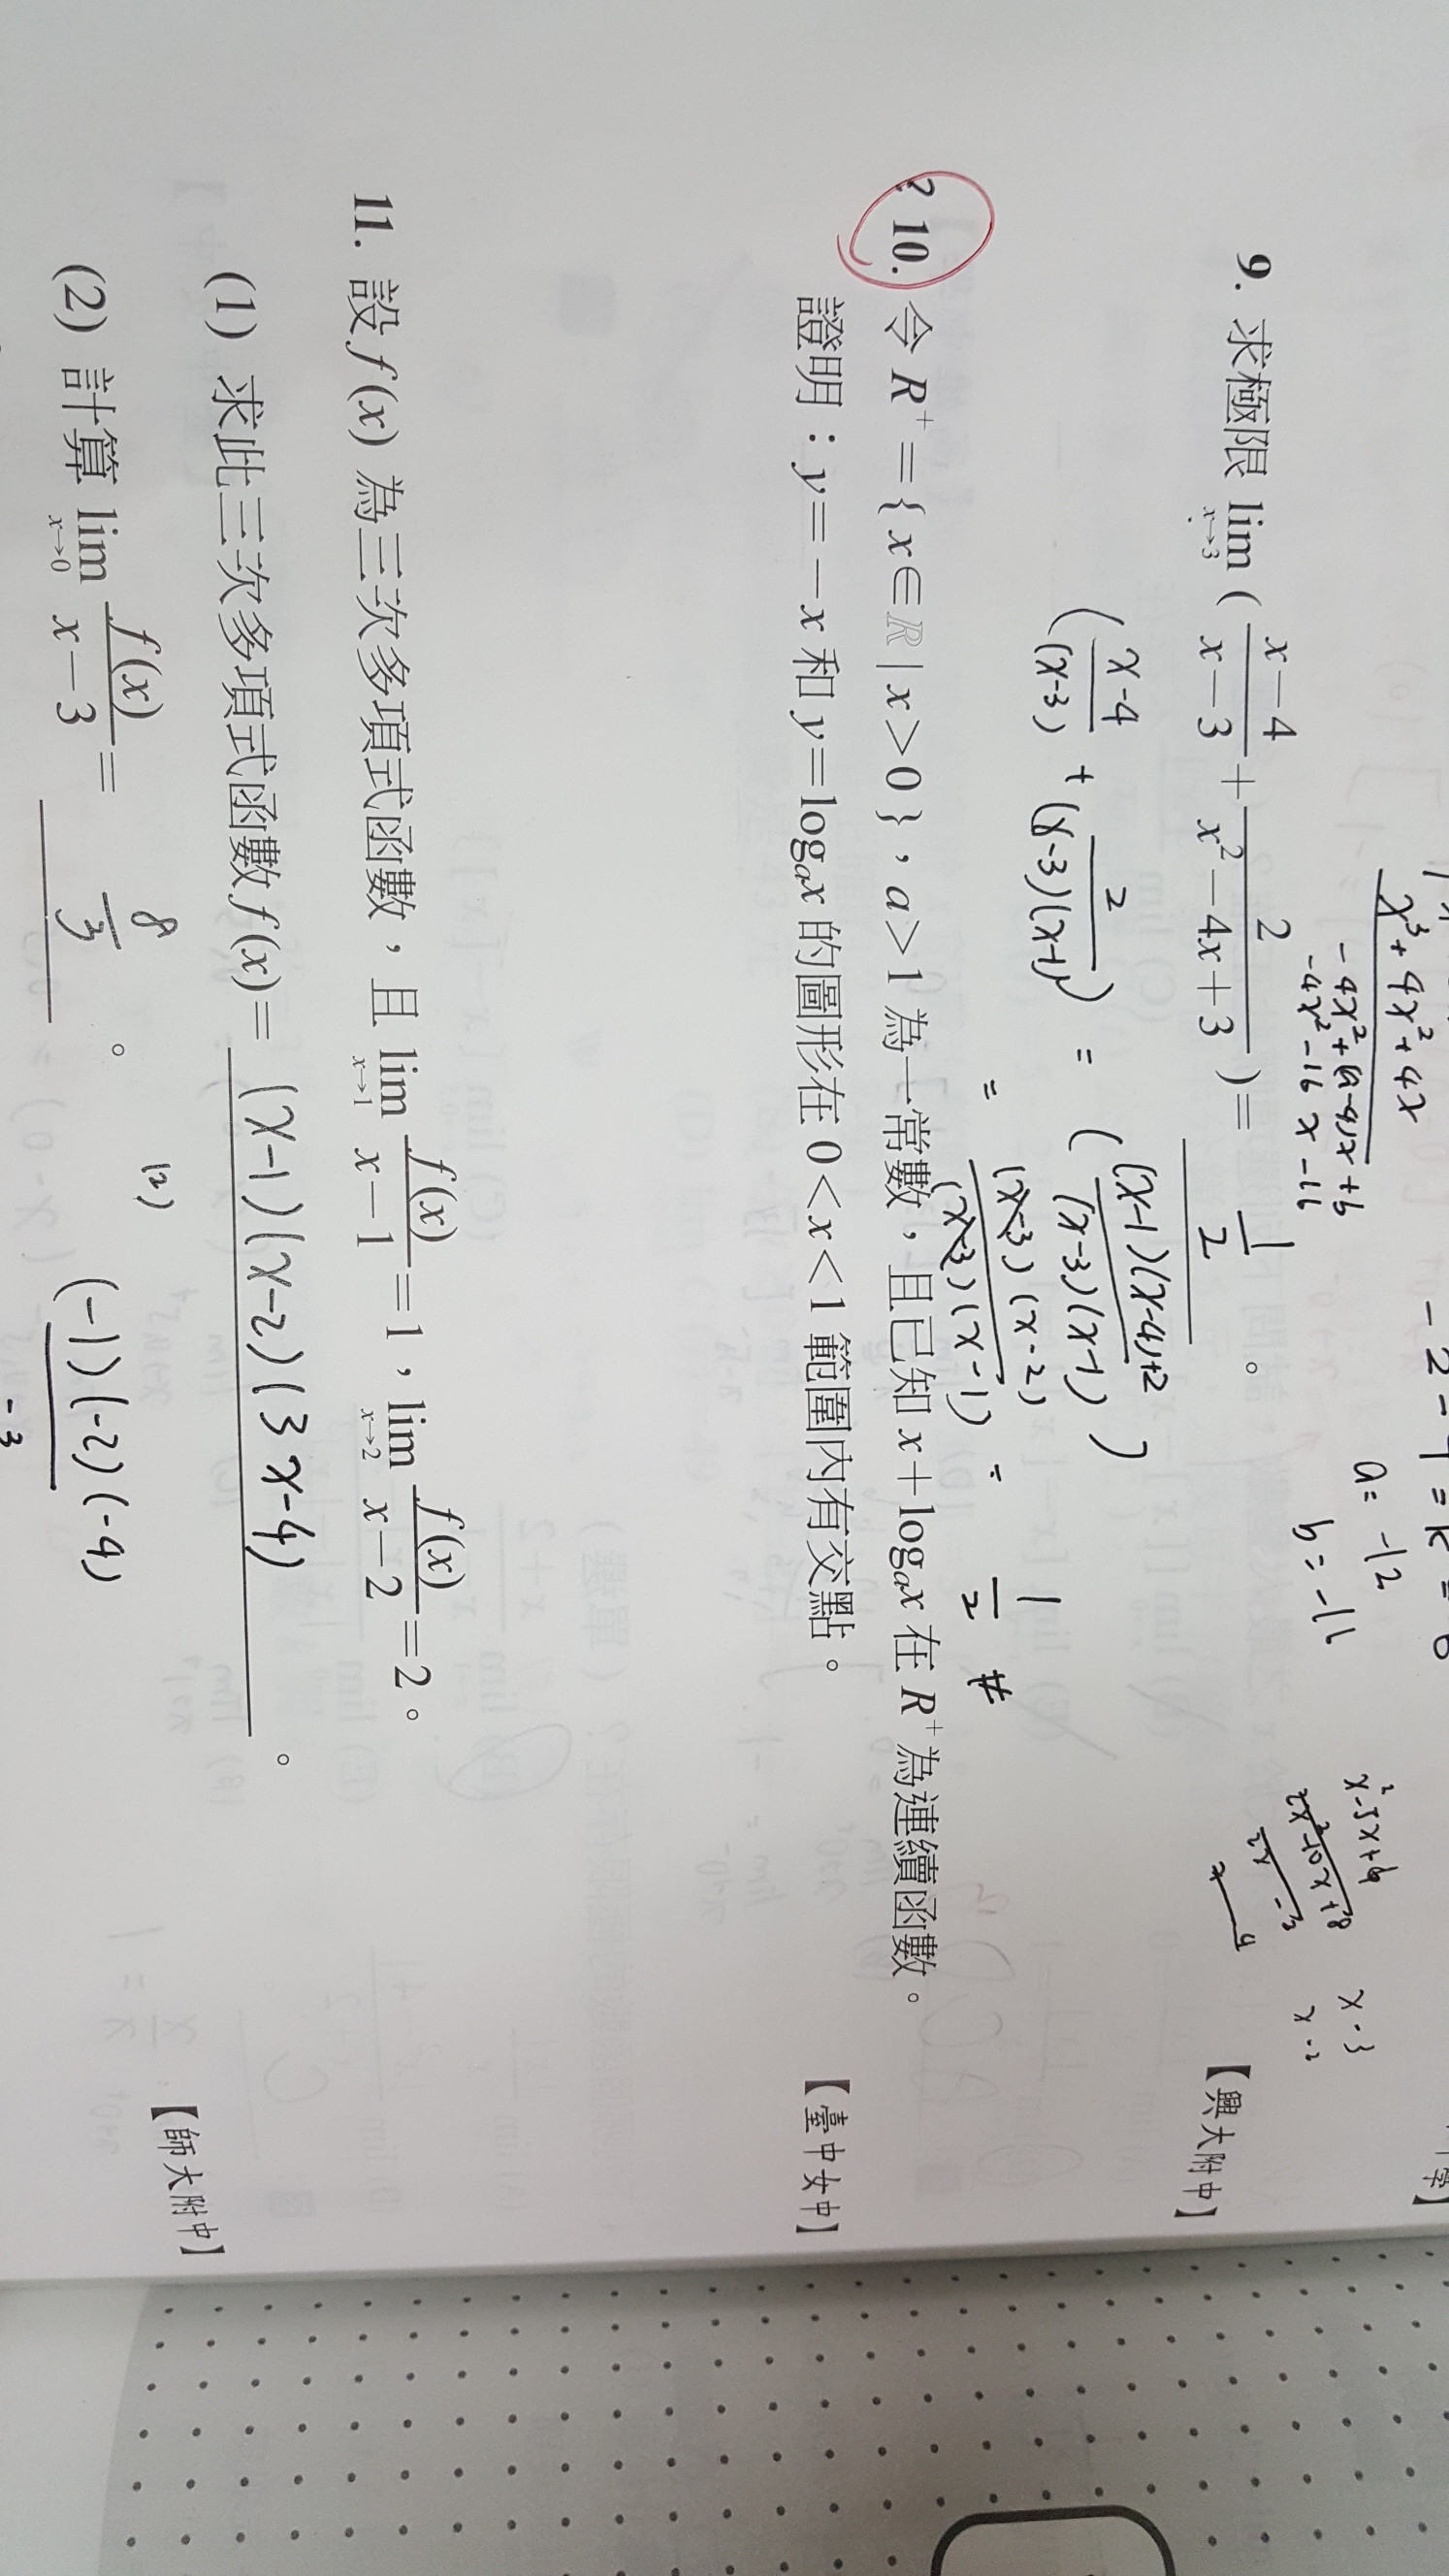 x³+4x²+4x
-4x²-16x-16
a=-12
b=-11
9. 求極限 lim x→3 ( x-4 / x-3 + 2 / x²-4x+3 )= 1/2 。
【興大附中】
( x-4 / (x-3) + 2 / (x-3)(x-1) ) = ( (x-1)(x-4)+2 / (x-3)(x-1) )
= (x-3)(x-2) / (x-3)(x-1) = 1/2 #
? 10. 令 R⁺={ x∈ℝ | x>0 }，a>1 為一常數，且已知 x+logₐx 在 R⁺ 為連續函數。
證明：y=-x 和 y=logₐx 的圖形在 0<x<1 範圍內有交點。
【臺中女中】
11. 設 f(x) 為三次多項式函數，且 lim x→1 f(x) / x-1 =1，lim x→2 f(x) / x-2 =2。
(1) 求此三次多項式函數 f(x)= (x-1)(x-2)(3x-4) 。
【師大附中】
(2) 計算 lim x→0 f(x) / x-3 = 8/3 。
(2) (-1)(-2)(-4) / -3